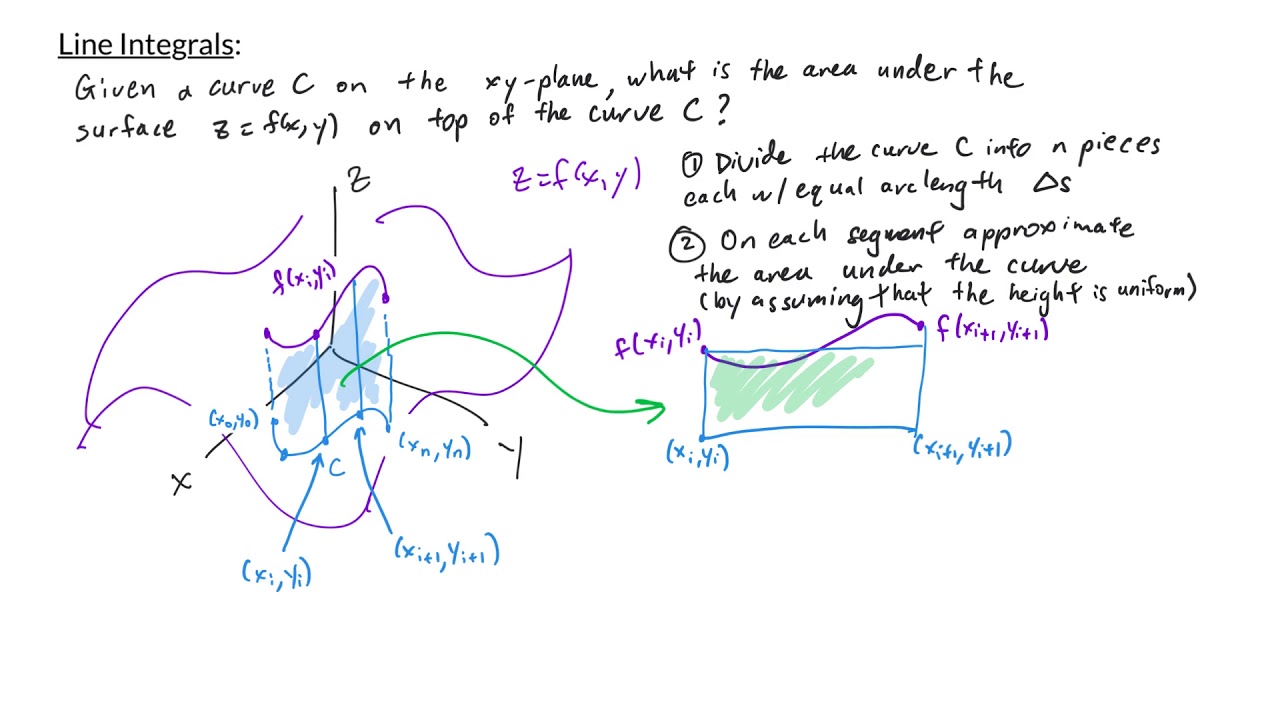 Line Integrals:
Given a curve C on the xy-plane, what is the area under the
surface z = f(x, y) on top of the curve C?
① Divide the curve C into n pieces
each w/ equal arclength Δs
② On each segment approximate
the area under the curve
(by assuming that the height is uniform)
z
z=f(x, y)
f(xᵢ,yᵢ)
(x₀,y₀)
(xₙ, yₙ)
x
y
C
(xᵢ, yᵢ)
(xᵢ₊₁, yᵢ₊₁)
f(xᵢ, yᵢ)
f(xᵢ₊₁, yᵢ₊₁)
(xᵢ, yᵢ)
(xᵢ₊₁, yᵢ₊₁)